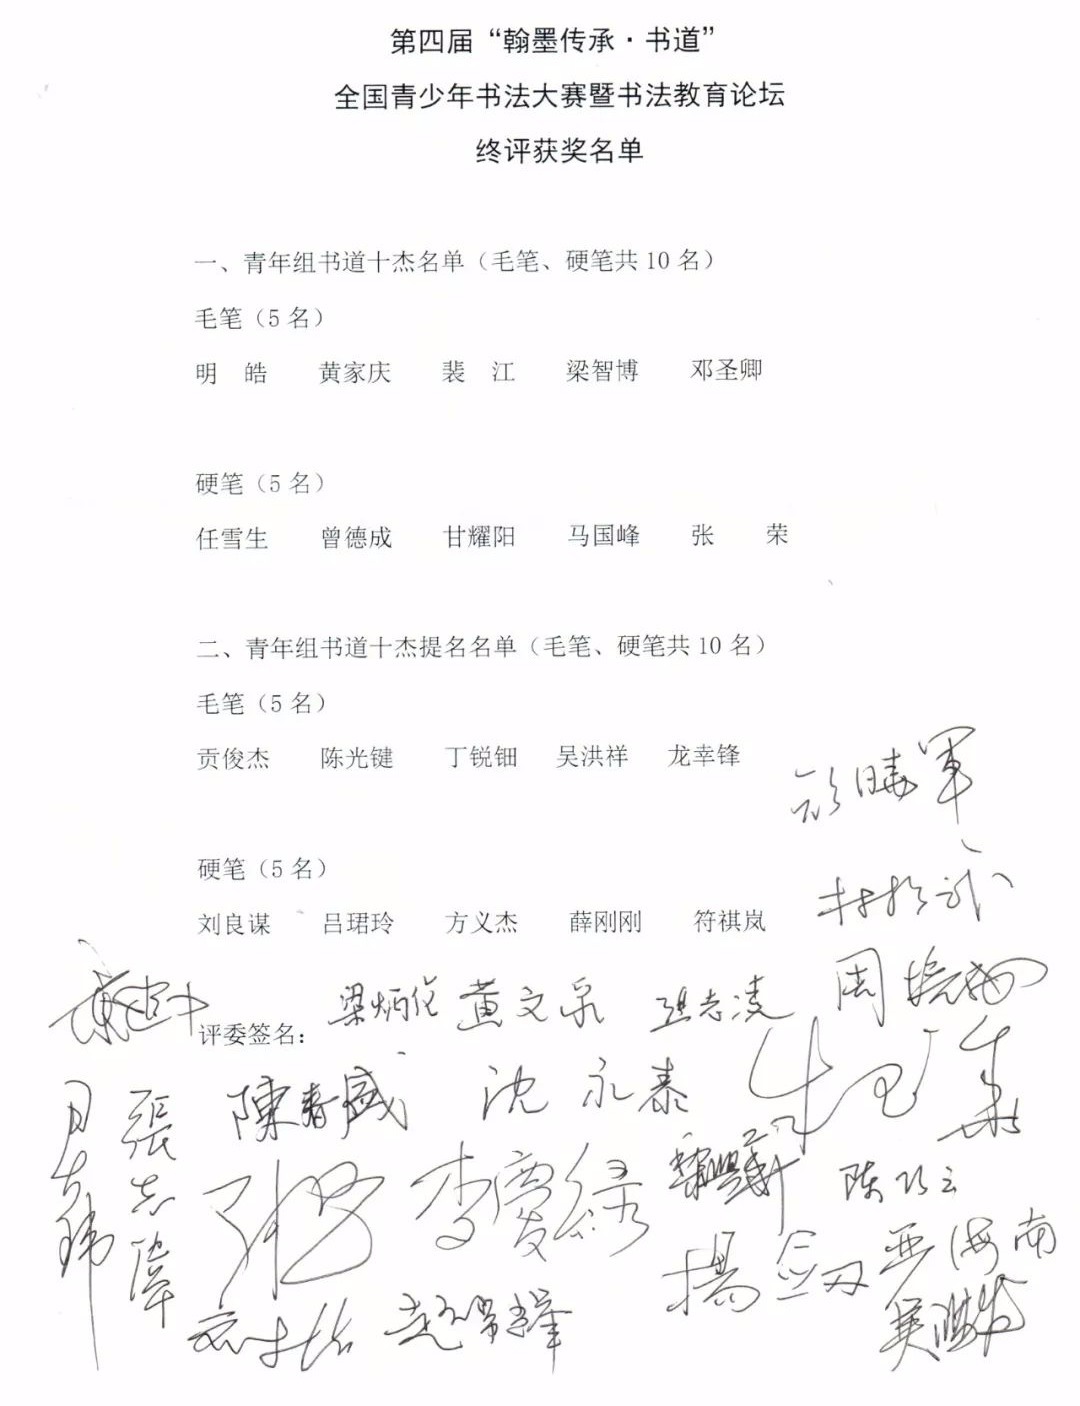 第四届“翰墨传承·书道”
全国青少年书法大赛暨书法教育论坛
终评获奖名单
一、青年组书道十杰名单（毛笔、硬笔共 10 名）
毛笔（5 名）
明　皓　　黄家庆　　裴　江　　梁智博　　邓圣卿
硬笔（5 名）
任雪生　　曾德成　　甘耀阳　　马国峰　　张　　荣
二、青年组书道十杰提名名单（毛笔、硬笔共 10 名）
毛笔（5 名）
贡俊杰　　陈光键　　丁锐钿　　吴洪祥　　龙幸锋
硬笔（5 名）
刘良谋　　吕珺玲　　方义杰　　薛刚刚　　符祺岚
梁炳伦 黄文泉 张志凌 周
评委签名：
張志偉 陳春盛 沈永泰
李慶绿
楊剑 海南